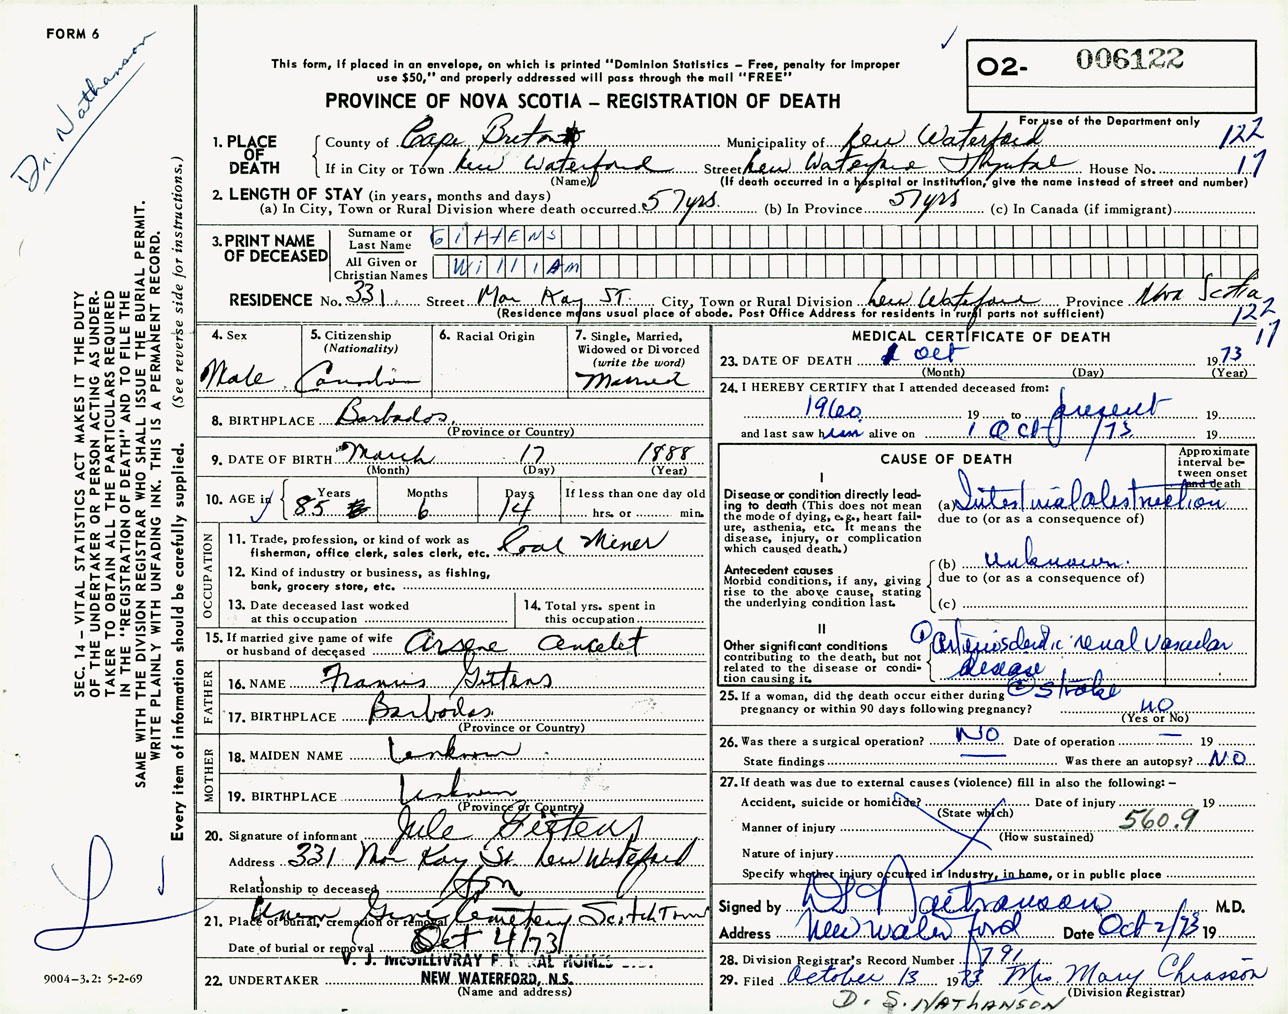 FORM 6
Dr. Nathanson
This form, if placed in an envelope, on which is printed "Dominion Statistics – Free, penalty for improper
use $50," and properly addressed will pass through the mail "FREE"
PROVINCE OF NOVA SCOTIA – REGISTRATION OF DEATH
O2- 006122
For use of the Department only
1. PLACE OF DEATH
County of Cape Breton Municipality of New Waterford 122
If in City or Town New Waterford Street New Waterford Hospital House No. 17
(Name) (If death occurred in a hospital or institution, give the name instead of street and number)
2. LENGTH OF STAY (in years, months and days)
(a) In City, Town or Rural Division where death occurred 57 yrs. (b) In Province 57 yrs (c) In Canada (if immigrant)
3. PRINT NAME OF DECEASED
Surname or Last Name GITTENS
All Given or Christian Names WilliAm
RESIDENCE No. 331 Street Mac Kay St. City, Town or Rural Division New Waterford Province Nova Scotia
(Residence means usual place of abode. Post Office Address for residents in rural parts not sufficient) 122
17
4. Sex Male
5. Citizenship (Nationality) Canadian
6. Racial Origin
7. Single, Married, Widowed or Divorced (write the word) Married
8. BIRTHPLACE Barbados
(Province or Country)
9. DATE OF BIRTH March 17 1888
(Month) (Day) (Year)
10. AGE in Years 85 Months 6 Days 14 If less than one day old hrs. or min.
OCCUPATION
11. Trade, profession, or kind of work as fisherman, office clerk, sales clerk, etc. Coal Miner
12. Kind of industry or business, as fishing, bank, grocery store, etc.
13. Date deceased last worked at this occupation
14. Total yrs. spent in this occupation
15. If married give name of wife or husband of deceased Arsene
FATHER
16. NAME Francis Gittens
17. BIRTHPLACE Barbados
(Province or Country)
MOTHER
18. MAIDEN NAME Unknown
19. BIRTHPLACE Unknown
(Province or Country)
20. Signature of informant Jule Gittens
Address 331 Mac Kay St New Waterford
Relationship to deceased Son
21. Place of burial, cremation or removal Cemetery Scotchtown
Date of burial or removal Oct 4/73
22. UNDERTAKER V. J. McGILLIVRAY FUNERAL HOMES LTD.
NEW WATERFORD, N.S.
(Name and address)
MEDICAL CERTIFICATE OF DEATH
23. DATE OF DEATH 1 Oct 1973
(Month) (Day) (Year)
24. I HEREBY CERTIFY that I attended deceased from:
1960 19 to present 19
and last saw him alive on 1 Oct /73 19
CAUSE OF DEATH
Approximate interval between onset and death
I
Disease or condition directly leading to death (This does not mean the mode of dying, e.g., heart failure, asthenia, etc. It means the disease, injury, or complication which caused death.)
(a) Intestinal obstruction
due to (or as a consequence of)
Antecedent causes
Morbid conditions, if any, giving rise to the above cause, stating the underlying condition last.
(b) unknown.
due to (or as a consequence of)
(c)
II
Other significant conditions
contributing to the death, but not related to the disease or condition causing it.
① Arteriosclerotic renal vascular
disease
② stroke
25. If a woman, did the death occur either during
pregnancy or within 90 days following pregnancy? no
(Yes or No)
26. Was there a surgical operation? NO Date of operation — 19
State findings Was there an autopsy? NO
27. If death was due to external causes (violence) fill in also the following: –
Accident, suicide or homicide? Date of injury 19
(State which)
Manner of injury 560.9
(How sustained)
Nature of injury
Specify whether injury occurred in industry, in home, or in public place
Signed by D S Nathanson M.D.
Address New Waterford Date Oct 2/73 19
28. Division Registrar's Record Number 791
29. Filed October 13 1973 Mrs. Mary Chiasson
(Division Registrar)
D. S. NATHANSON
SEC. 14 – VITAL STATISTICS ACT MAKES IT THE DUTY
OF THE UNDERTAKER OR PERSON ACTING AS UNDER-
TAKER TO OBTAIN ALL THE PARTICULARS REQUIRED
IN THE "REGISTRATION OF DEATH" AND TO FILE THE
SAME WITH THE DIVISION REGISTRAR WHO SHALL ISSUE THE BURIAL PERMIT.
WRITE PLAINLY WITH UNFADING INK. THIS IS A PERMANENT RECORD.
Every item of information should be carefully supplied. (See reverse side for instructions.)
9004-3.2: 5-2-69